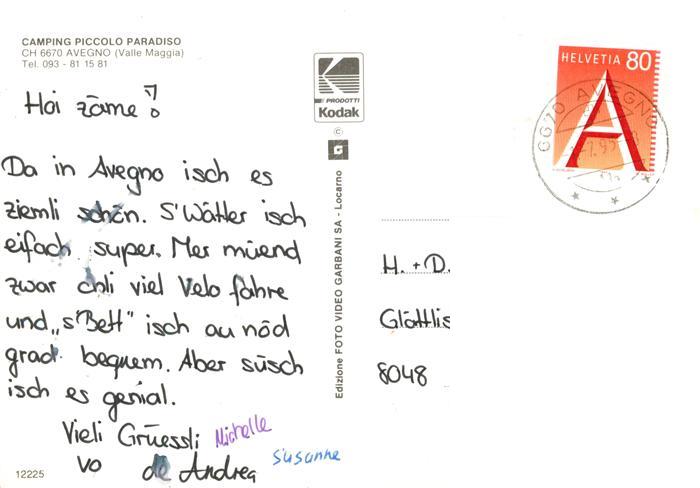 CAMPING PICCOLO PARADISO
CH 6670 AVEGNO (Valle Maggia)
Tel. 093 - 81 15 81
Hoi zäme!
Da in Avegno isch es
ziemli schön. S'Wätter isch
eifach super. Mer müend
zwar chli viel Velo fahre
und „s'Bett" isch au nöd
grad bequem. Aber süsch
isch es genial.
Vieli Grüessli Michelle
vo de Andrea Susanne
12225
PRODOTTI
Kodak
©
G
Edizione FOTO VIDEO GARBANI SA - Locarno
HELVETIA 80
A
AVEGNO
H. + D.
Glättlis
8048